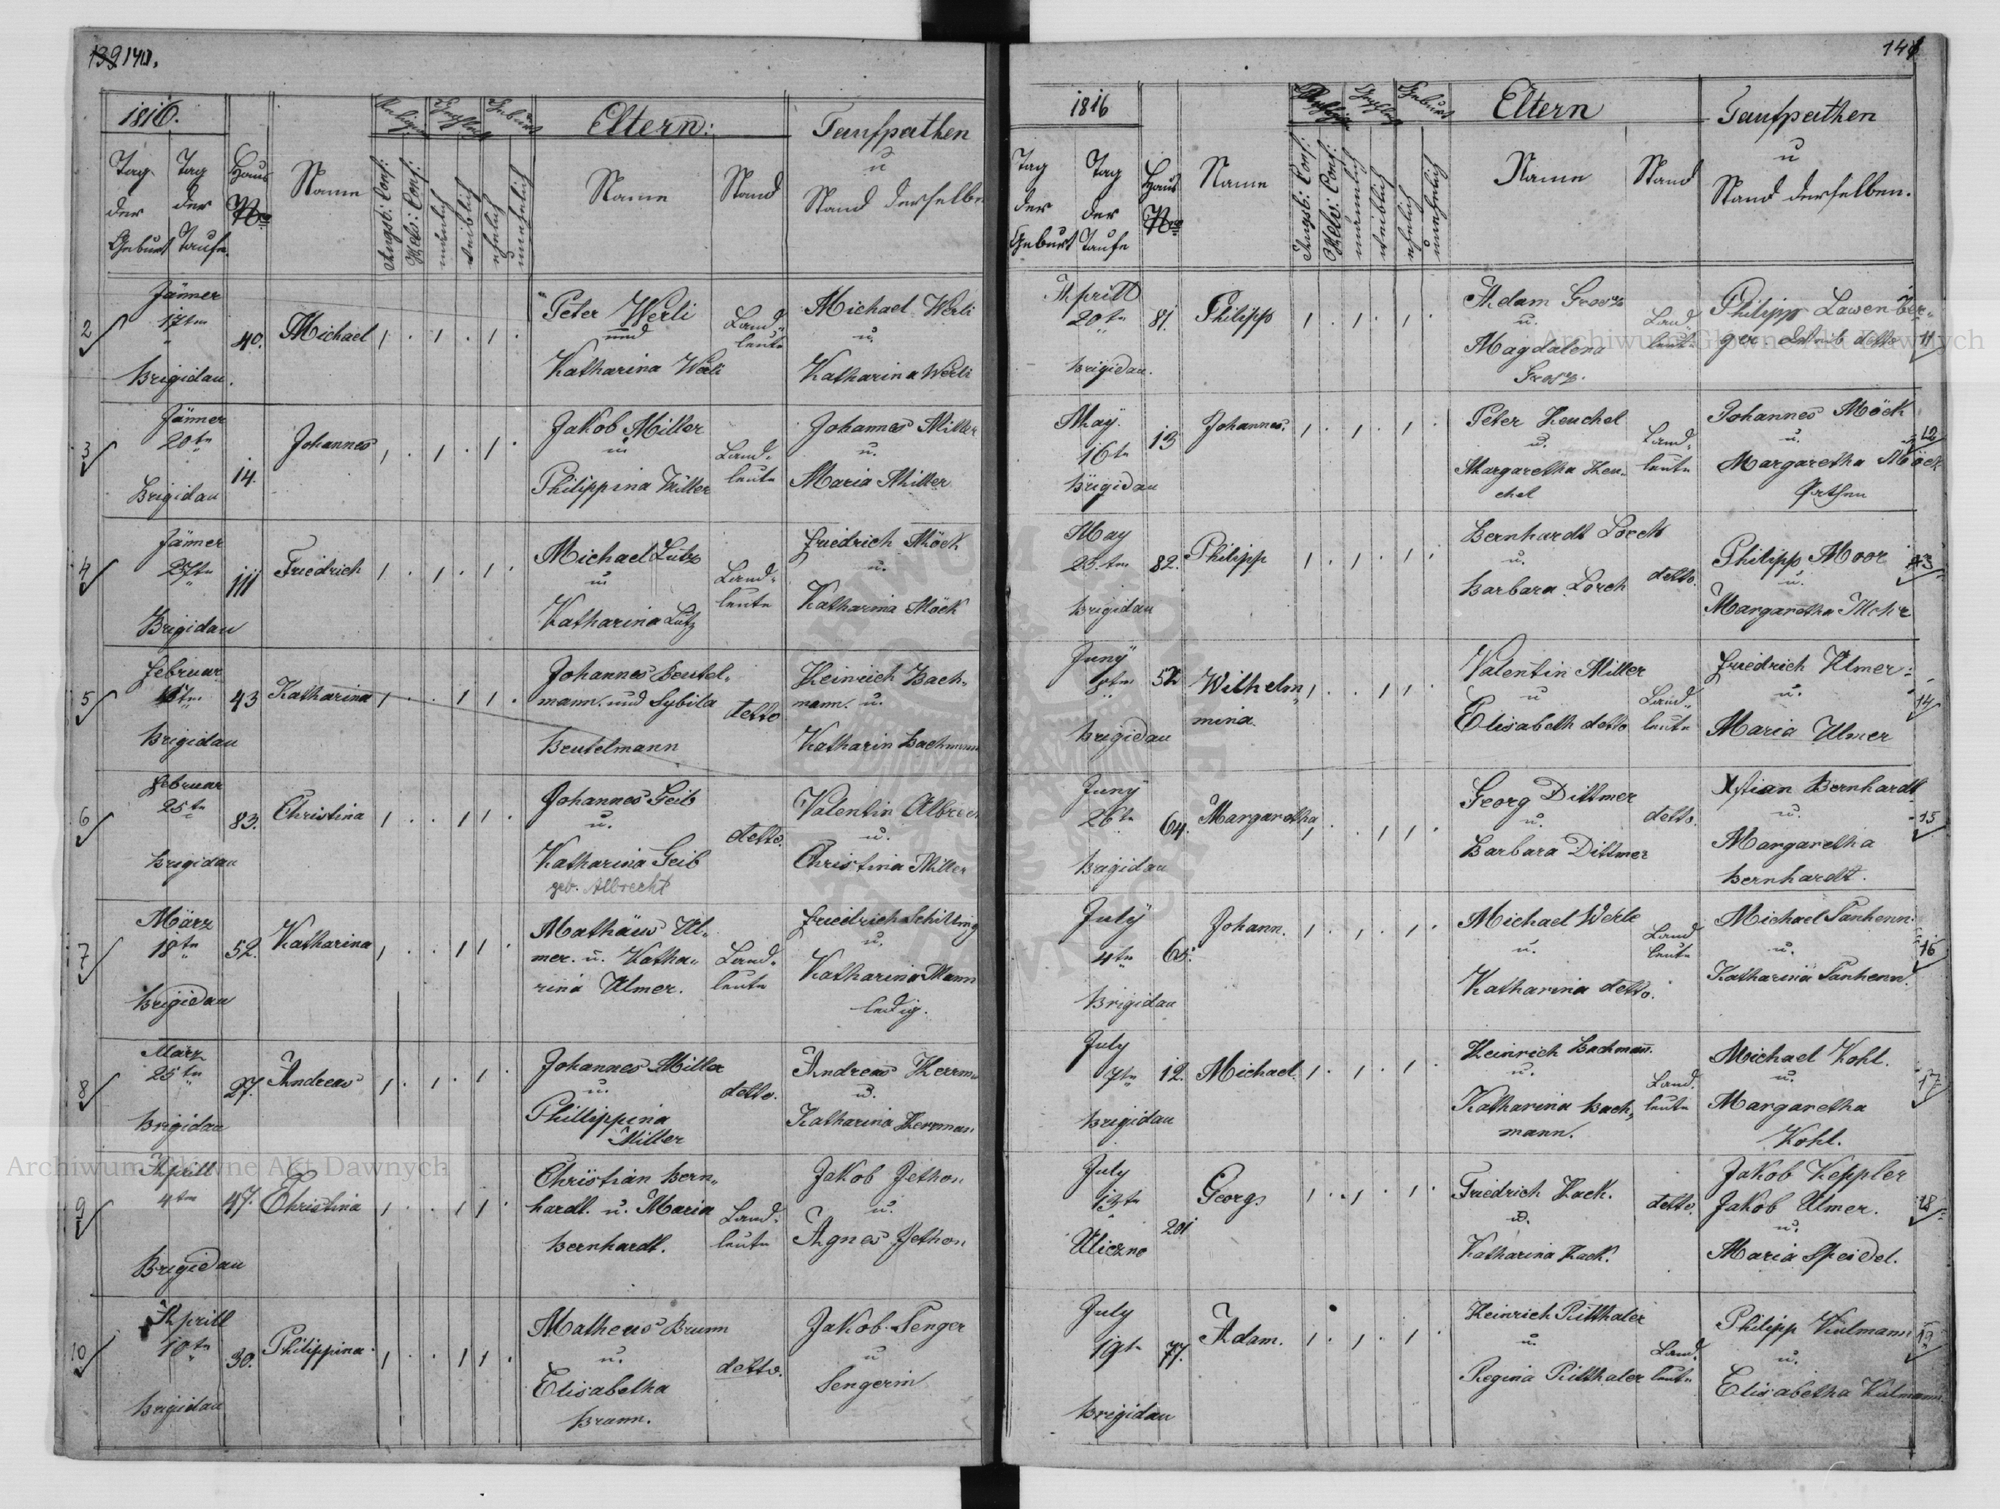 140.
1816.
Religion
Geschlecht
Geburt
Eltern:
Taufpathen
u
Stand derselben
Tag
der
Geburt
Tag
der
Taufe.
Haus
Nro
Name
Augsb: Conf:
Helv: Conf:
männlich
weiblich
ehelich
unehelich
Name
Stand
2
Jänner
17ten
Brigidau.
40.
Michael
Peter Werli
und
Katharina Werli
Land-
leute
Michael Werli
u.
Katharina Werli
3
Jänner
20tn
Brigidau
14.
Johannes
Jakob Miller
u
Philippina Miller
Land-
leute
Johannes Miller
u.
Maria Miller
4
Jänner
27tn
Brigidau
111
Friedrich
Michael Lutz
u
Katharina Lutz
Land-
leute
Friedrich Möck
u.
Katharina Möck
5
Februar
Brigidau
43
Katharina
Johannes Beutel-
mann. und Sybila
Beutelmann
detto
Heinrich Bach-
mann. u.
Katharin Bachmann
6
Februar
25tn
Brigidau
83.
Christina
Johannes Geib
u.
Katharina Geib
geb. Albrecht
detto.
Valentin Albrecht
u.
Christina Miller
7
März
18tn
Brigidau
52.
Katharina
Mathäus Ul-
mer. u. Katha-
rina Ulmer.
Land-
leute
Friedrich Schilling
u.
Katharina Mann
ledig.
8
März
25tn
Brigidau
27.
Andreas
Johannes Miller
u.
Phillippina
Miller
detto.
Andreas Herrman
u.
Katharina Herrman
9
Aprill
4tn
Brigidau
47.
Christina
Christian Bern-
hardt. u. Maria
Bernhardt.
Land-
leute
Jakob Jethon
u.
Agnes Jethon
10
Aprill
10tn
Brigidau
30.
Philippina.
Matheus Brunn
u.
Elisabetha
Brunn.
detto.
Jakob Senger
u
Sengerin
141
1816
Religion
Geschlecht
Geburt
Eltern
Taufpathen
u
Stand derselben.
Tag
der
Geburt
Tag
der
Taufe
Haus
Nro
Name
Augsb: Conf:
Helv: Conf:
männlich
weiblich
ehelich
unehelich
Name
Stand
Aprill
20tn
Brigidau.
81.
Philipp
Adam Grosz
u.
Magdalena
Grosz.
Land
leute
Philipp Lawenber-
ger Weib detto
11
May.
16tn
Brigidau
13
Johannes.
Peter Heuchel
u.
Margaretha Heu-
chel
Land-
leute
Johannes Möck
u.
Margaretha Möck
Pathen
12
May
25.tn
Brigidau
82.
Philipp
Bernhardt Lorch
u.
Barbara Lorch
detto.
Philipp Moor
u.
Margaretha Mohr
13
Juny
8tn
Brigidau
52
Wilhelm-
mina.
Valentin Miller
u
Elisabeth detto
Land-
leute
Friedrich Ulmer
u.
Maria Ulmer
14
Juny
26tn
Brigidau
64.
Margaretha
Georg Dittmer
u.
Barbara Dittmer
detto.
Xstian Bernhardt
u.
Margaretha
Bernhardt.
15
July
4tn
Brigidau
65.
Johann.
Michael Wehle
u.
Katharina detto.
Land
leute
Michael Tanhenn.
u.
Katharina Tanhenn.
16
July
7tn
Brigidau
12.
Michael.
Heinrich Bachmann.
u.
Katharina Bach-
mann.
Land.
leute
Michael Kohl.
u.
Margaretha
Kohl.
17
July
13tn
Uliczno
201
Georg.
Friedrich Hack.
u.
Katharina Hack.
detto.
Jakob Keppler
Jakob Ulmer.
u.
Maria Speidel.
18
July
19tn
Brigidau
77.
Adam.
Heinrich Ritthaler
u.
Regina Ritthaler
Land.
leute
Philipp Kulmann
u.
Elisabetha Kulmann
19
Archiwum Główne Akt Dawnych
Archiwum Główne Akt Dawnych